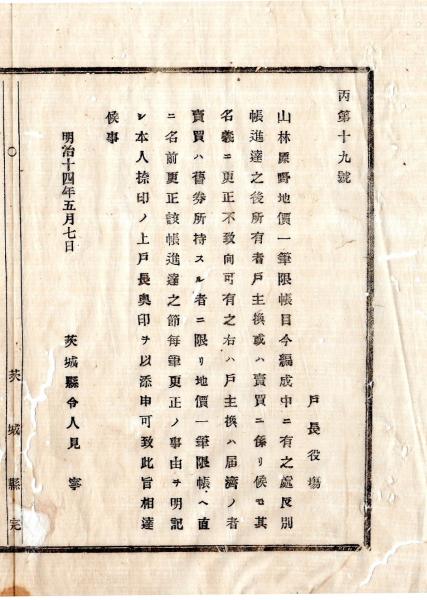 丙第十九號
戸長役塲
山林原野地價一筆限帳目今編成中ニ有之處反別
帳進達之後所有者戸主換或ハ賣買ニ係リ候モ其
名義ニ更正不致向可有之右ハ戸主換ハ届濟ノ者
賣買ハ舊券所持スル者ニ限リ地價一筆限帳ヘ直
ニ名前更正該帳進達之節毎筆更正ノ事由ヲ明記
シ本人捺印ノ上戸長奥印ヲ以添申可致此旨相達
候事
明治十四年五月七日
茨城縣令人見寧
茨城縣